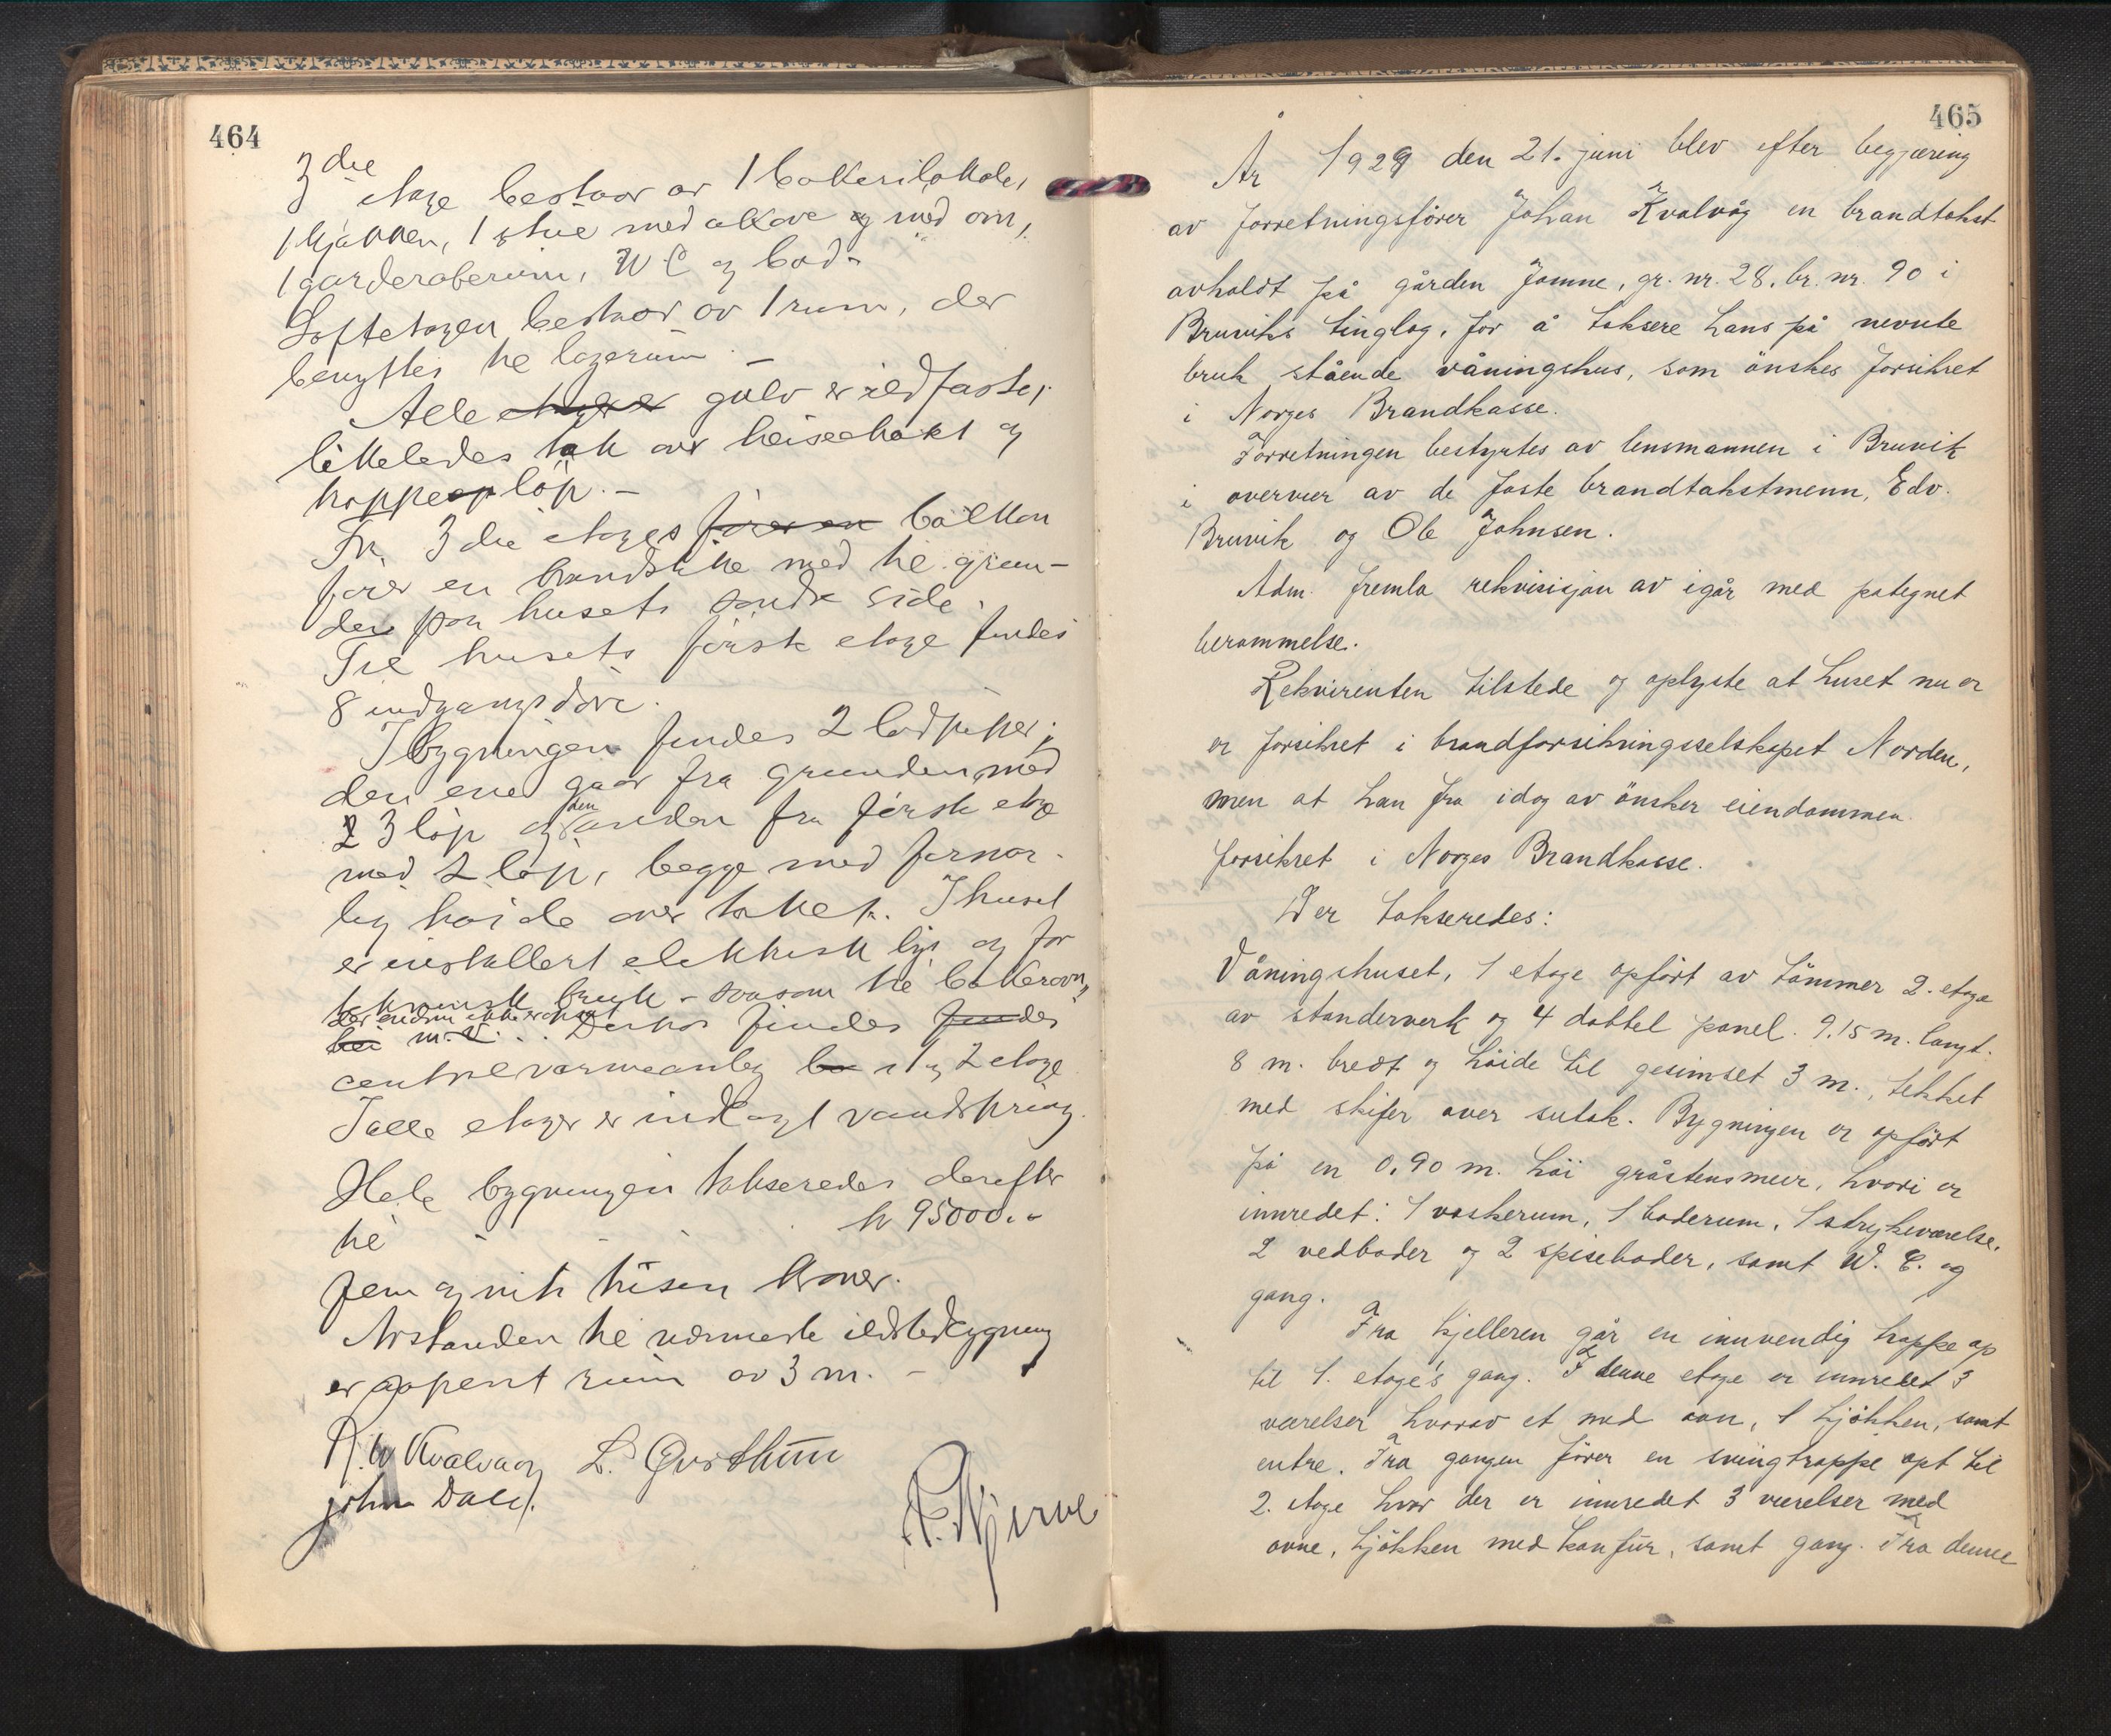 464
3die etage bestaar av 1 bakerilokale,
1 kjøkken, 1 stue med alkove og med ovn,
1 garderoberum, W C og bad.
Loftetagen bestaar av 1 rum, der
benyttes til lagerum. –
Alle etager gulv er ildfaste,
likeledes tak over heisesjakt og
trappeopløp. –
Fra 3die etages fører en balkon
fører en brandstike ned til grun-
den paa husets søndre side.
Til husets første etage findes
8 indgangsdøre.
I bygningen findes 2 brdpiper;
den ene gaar fra grunden med
2 3 løp og den anden fra første etage
med 2 løp, begge med forsvar-
lig høide over taket. I huset
er installert elektrisk lys og for
teknisk bruk – saasom til bakerovn,
der endnu ikke er
hei m. v. Derhos findes findes
centralvarmeanlæg i 1 og 2 etage
I alle etager er indlagt vandspring.
Hele bygningen takseredes derefter
til kr 95000.–
fem og niti tusen kroner.
Avstanden til nærmeste ildstedbygning
er aapent rum av 3 m. –
R. W Kvalvaag L.
John Dale.
465
År 1929 den 21. juni blev efter begjæring
av forretningsfører Johan Kvalvåg en brandtakst
avholdt på gården Jamne, gr. nr. 28, br. nr. 90 i
Bruviks tinglag, for å taksere hans på nevnte
bruk stående våningshus, som ønskes forsikret
i Norges Brandkasse.
Forretningen bestyrtes av lensmannen i Bruvik
i overvær av de faste brandtakstmenn, Edv.
Bruvik og Ole Johnsen.
Adm. fremla rekvisisjon av igår med pategnet
berammelse.
Rekvirenten tilstede og oplyste at huset nu er
er forsikret i brandforsikringsselskapet Norden,
men at han fra idag av ønsker eiendommen
forsikret i Norges Brandkasse.
Der takseredes:
Våningshuset, 1 etage opført av tømmer 2. etage
av standerverk og 4 dobbel panel. 9.15 m. langt.
8 m. bredt og høide til gesimset 3 m., tekket
med skifer over sutak. Bygningen er opført
på en 0,90 m. høi gråstensmur, hvori er
innredet: 1 vaskerum, 1 baderum, 1 strykeværelse,
2 vedboder og 2 spiseboder, samt W. C. og
gang.
Fra kjelleren går en innvendig trappe op
til 1. etage's gang. I denne etage er innredet 3
værelser hvorav et med ovn, 1 kjøkken, samt
entre. Fra gangen fører en svingtrappe opt til
2. etage hvor der er innredet 3 værelser med
ovne, kjøkken med komfur, samt gang. Fra denne